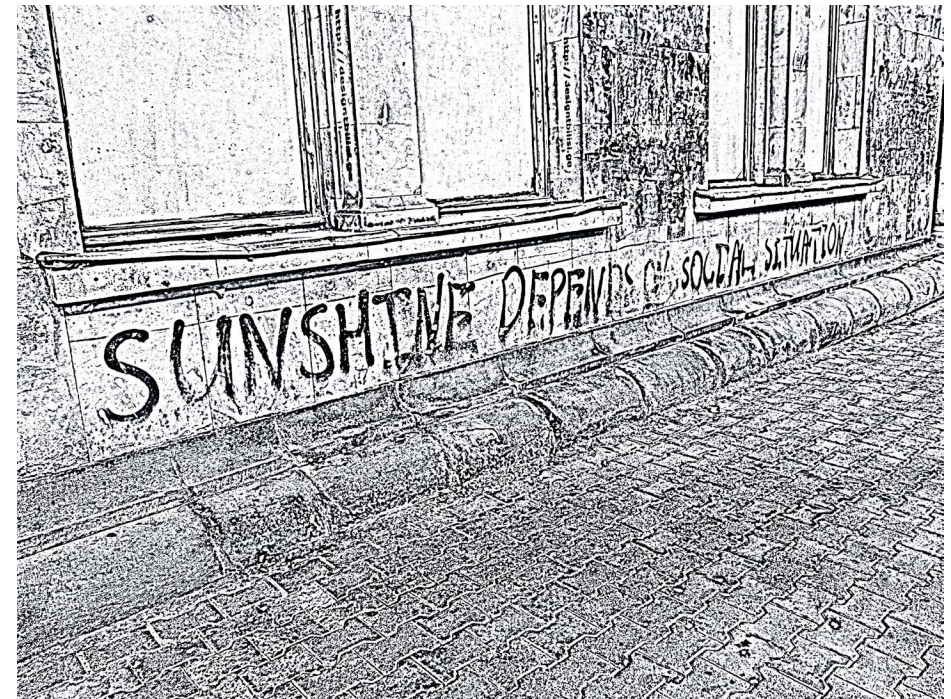 SUNSHINE DEPENDS ON SOCIAL SITUATION